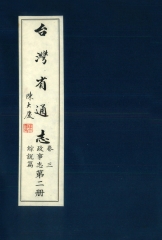 台灣省通志
陳大慶
卷三
政事志
綜說篇
第二冊